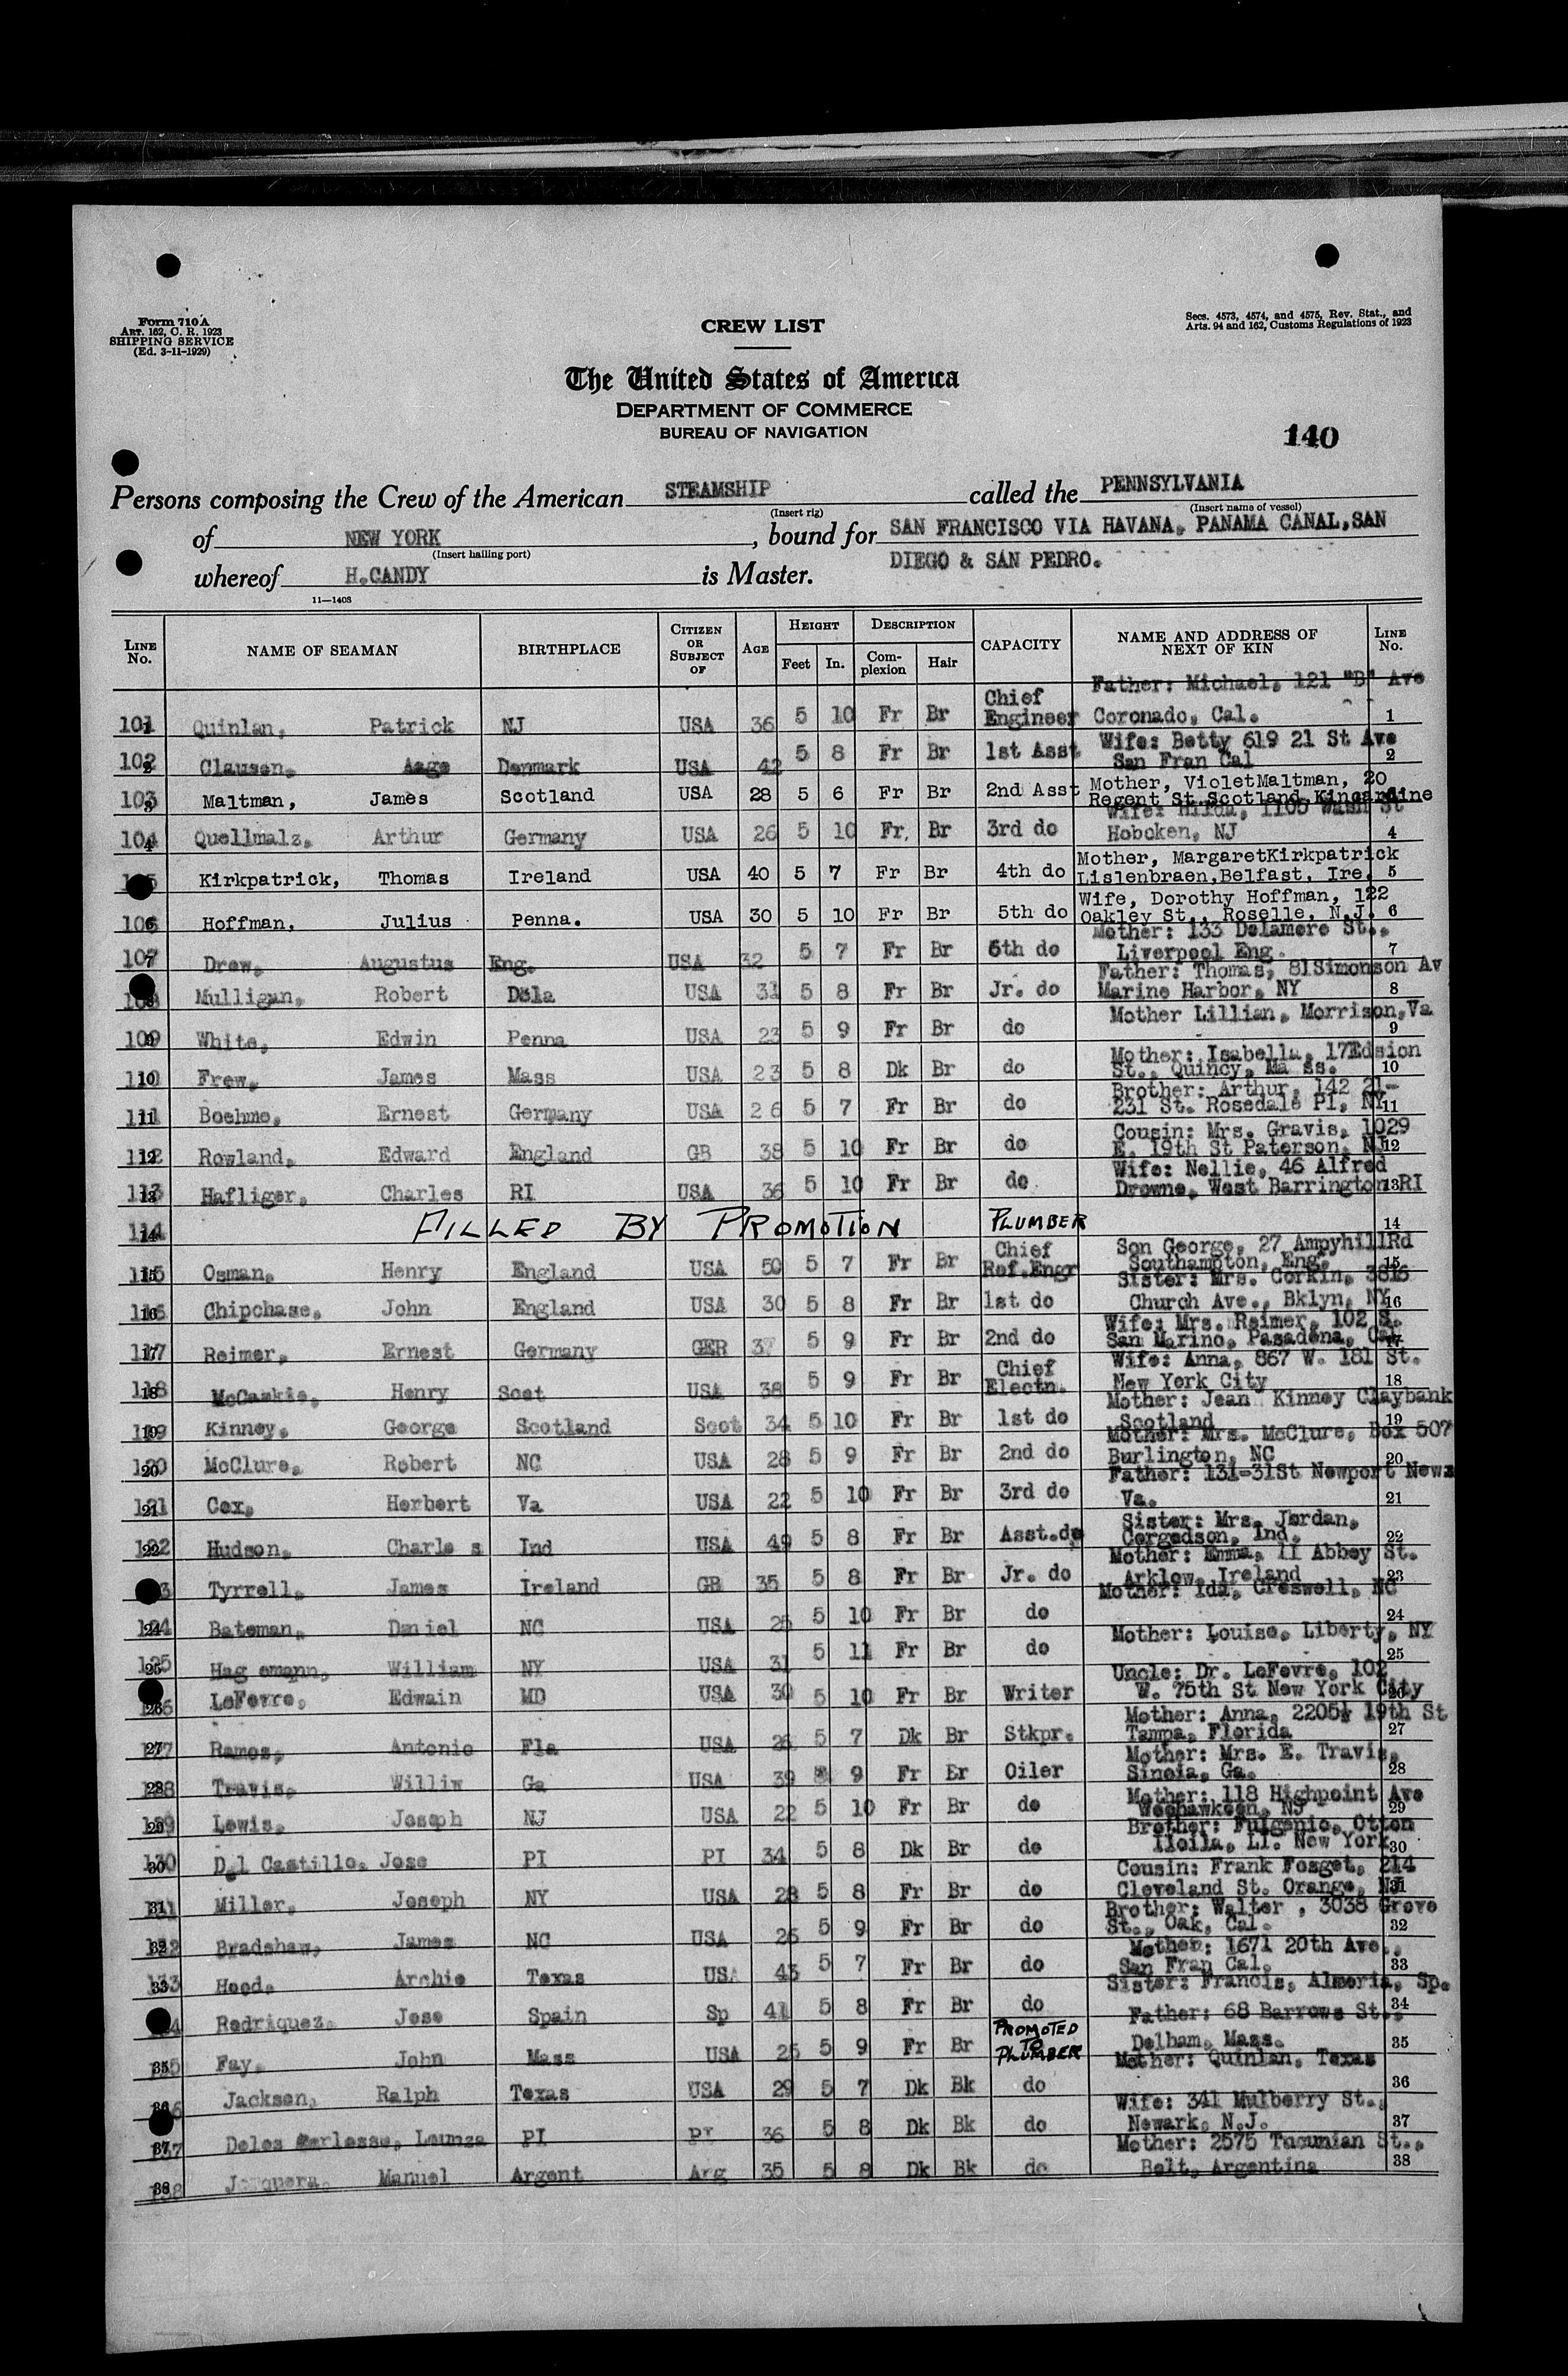 Form 710 A
ART. 162, C. R. 1923
SHIPPING SERVICE
(Ed. 3-11-1929)
CREW LIST
Secs. 4573, 4574, and 4575, Rev. Stat., and
Arts. 94 and 162, Customs Regulations of 1923
The United States of America
DEPARTMENT OF COMMERCE
BUREAU OF NAVIGATION
140
Persons composing the Crew of the American STEAMSHIP called the PENNSYLVANIA
(Insert rig) (Insert name of vessel)
of NEW YORK, bound for SAN FRANCISCO VIA HAVANA, PANAMA CANAL,SAN
(Insert hailing port)
DIEGO & SAN PEDRO.
whereof H.CANDY is Master.
11—1408
LINE No. NAME OF SEAMAN BIRTHPLACE CITIZEN OR SUBJECT OF AGE HEIGHT Feet In. DESCRIPTION Complexion Hair CAPACITY NAME AND ADDRESS OF NEXT OF KIN LINE No.
101 Quinlan, Patrick NJ USA 36 5 10 Fr Br Chief Engineer Father: Michael, 121 "B" Ave Coronado, Cal. 1
102 Clausen, Aage Denmark USA 42 5 8 Fr Br 1st Asst Wife: Betty 619 21 St Ave San Fran Cal 2
103 Maltman, James Scotland USA 28 5 6 Fr Br 2nd Asst Mother, VioletMaltman, 20 Regent St.Scotland,Kincardine
104 Quellmalz, Arthur Germany USA 26 5 10 Fr, Br 3rd do Wife: Hilda, 1105 Wash St Hoboken, NJ 4
Kirkpatrick, Thomas Ireland USA 40 5 7 Fr Br 4th do Mother, MargaretKirkpatrick Lislenbraen,Belfast, Ire. 5
106 Hoffman, Julius Penna. USA 30 5 10 Fr Br 5th do Wife, Dorothy Hoffman, 122 Oakley St., Roselle, N.J. 6
107 Drew, Augustus Eng. USA 32 5 7 Fr Br 6th do Mother: 133 Delamere St., Liverpool Eng. 7
108 Mulligan, Robert Dela USA 31 5 8 Fr Br Jr. do Father: Thomas, 81Simonson Av Marine Harbor, NY 8
109 White, Edwin Penna USA 23 5 9 Fr Br do Mother Lillian, Morrison,Va 9
110 Frew, James Mass USA 23 5 8 Dk Br do Mother: Isabella, 17Edsion St., Quincy, Ma ss. 10
111 Boehme, Ernest Germany USA 26 5 7 Fr Br do Brother: Arthur, 142 21- 231 St. Rosedale Pl, NY 11
112 Rowland, Edward England GB 38 5 10 Fr Br do Cousin: Mrs. Gravis, 1029 E. 19th St Paterson, NJ 12
113 Hafliger, Charles RI USA 36 5 10 Fr Br do Wife: Nellie, 46 Alfred Drowne, West Barrington RI 13
114 FILLED BY PROMOTION PLUMBER 14
115 Osman, Henry England USA 50 5 7 Fr Br Chief Ref.Engr Son George, 27 AmpyhillRd Southampton, Eng. 15
116 Chipchase, John England USA 30 5 8 Fr Br 1st do Sister: Mrs. Corkin, 3816 Church Ave., Bklyn, NY 16
117 Reimer, Ernest Germany GER 37 5 9 Fr Br 2nd do Wife: Mrs. Reimer, 102 S. San Marino, Pasadena, Cal
118 McCaskie, Henry Scot USA 38 5 9 Fr Br Chief Electn. Wife: Anna, 867 W. 181 St. New York City 18
119 Kinney, George Scotland Scot 34 5 10 Fr Br 1st do Mother: Jean Kinney Claybank Scotland 19
120 McClure, Robert NC USA 28 5 9 Fr Br 2nd do Mother: Mrs. McClure, Box 507 Burlington, NC 20
121 Cox, Herbert Va USA 22 5 10 Fr Br 3rd do Father: 131-31St Newport News Va. 21
122 Hudson, Charle s Ind USA 49 5 8 Fr Br Asst.do Sister: Mrs. Jordan, Ind. 22
Tyrrell, James Ireland GB 35 5 8 Fr Br Jr. do Mother: Emma, 11 Abbey St. Arklow, Ireland 23
124 Bateman, Daniel NC USA 25 5 10 Fr Br do Mother: Ida, Creswell, NC 24
125 Hag emann, William NY USA 31 5 11 Fr Br do Mother: Louise, Liberty, NY 25
LeFevre, Edwain MD USA 30 5 10 Fr Br Writer Uncle: Dr. LeFevre, 102 W. 75th St New York City
127 Ramos, Antonio Fla USA 26 5 7 Dk Br Stkpr. Mother: Anna, 2205½ 19th St Tampa, Florida 27
128 Travis, Willim Ga USA 39 9 Fr Er Oiler Mother: Mrs. E. Travis, Sinoia, Ga. 28
129 Lewis, Joseph NJ USA 22 5 10 Fr Br do Mother: 118 Highpoint Ave Weehawkeen, NJ 29
130 Del Castillo, Jose PI PI 34 5 8 Dk Br do Brother: Fulgenio, LI. New York 30
131 Miller, Joseph NY USA 28 5 8 Fr Br do Cousin: Frank Fosget, 214 Cleveland St. Orange, NJ
132 Bradshaw, James NC USA 26 5 9 Fr Br do Brother: Walter , 3038 Grove St., Oak, Cal. 32
133 Hood, Archie Texas USA 43 5 7 Fr Br do Mother: 1671 20th Ave., San Fran Cal. 33
Rodriquez, Jose Spain Sp 41 5 8 Fr Br do Sister: Francis, Almeria, Sp. 34
135 Fay, John Mass USA 25 5 9 Fr Br PROMOTED TO PLUMBER Father: 68 Barrows St., Delham, Mass. 35
Jackson, Ralph Texas USA 29 5 7 Dk Bk do Mother: Quinlan, Texas 36
137 Delos PI PI 36 5 8 Dk Bk do Wife: 341 Mulberry St., Newark, N.J. 37
138 Manuel Argent Arg 35 5 8 Dk Bk do Mother: 2575 Tucumian St., Belt, Argentina 38